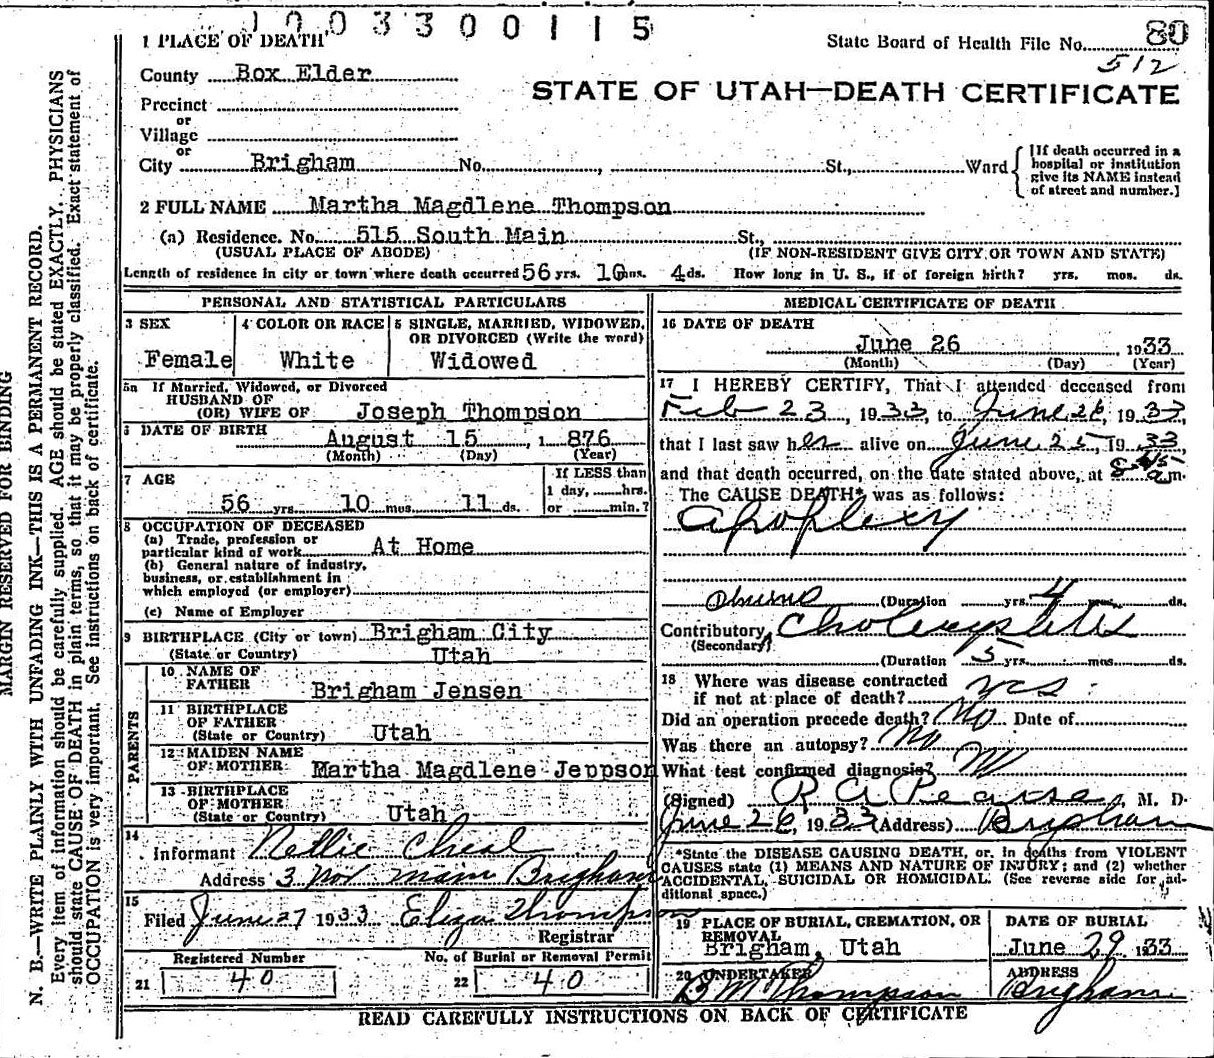 1003300115
1 PLACE OF DEATH
State Board of Health File No. 80
512
County Box Elder
STATE OF UTAH—DEATH CERTIFICATE
Precinct
or
Village
or
City Brigham No. , St., Ward
[If death occurred in a
hospital or institution
give its NAME instead
of street and number.]
2 FULL NAME Martha Magdlene Thompson
(a) Residence. No. 515 South Main St.,
(USUAL PLACE OF ABODE) (IF NON-RESIDENT GIVE CITY OR TOWN AND STATE)
Length of residence in city or town where death occurred 56 yrs. 10 mos. 4 ds. How long in U. S., if of foreign birth? yrs. mos. ds.
PERSONAL AND STATISTICAL PARTICULARS
3 SEX
Female
4 COLOR OR RACE
White
5 SINGLE, MARRIED, WIDOWED,
OR DIVORCED (Write the word)
Widowed
5a If Married, Widowed, or Divorced
HUSBAND OF
(OR) WIFE OF Joseph Thompson
6 DATE OF BIRTH
August 15 , 1 876
(Month) (Day) (Year)
7 AGE
56 yrs. 10 mos. 11 ds.
If LESS than
1 day, hrs.
or min.?
8 OCCUPATION OF DECEASED
(a) Trade, profession or
particular kind of work At Home
(b) General nature of industry,
business, or establishment in
which employed (or employer)
(c) Name of Employer
9 BIRTHPLACE (City or town) Brigham City
(State or Country) Utah
PARENTS
10 NAME OF
FATHER Brigham Jensen
11 BIRTHPLACE
OF FATHER
(State or Country) Utah
12 MAIDEN NAME
OF MOTHER Martha Magdlene Jeppson
13 BIRTHPLACE
OF MOTHER
(State or Country) Utah
14
Informant Nellie Cheal
Address 3 Nor Main Brigham
15
Filed June 27 1933 Eliza Thompson
Registrar
Registered Number
21 40
No. of Burial or Removal Permit
22 40
MEDICAL CERTIFICATE OF DEATH
16 DATE OF DEATH
June 26 , 1933
(Month) (Day) (Year)
17 I HEREBY CERTIFY, That I attended deceased from
Feb 23, 1933, to June 26, 1933,
that I last saw her alive on June 25, 1933,
and that death occurred, on the date stated above, at am.
The CAUSE DEATH* was as follows:
Apoplexy
(Duration yrs. 4 mos. ds.
Contributory Cholecystitis
(Secondary)
(Duration 5 yrs. mos. ds.
18 Where was disease contracted
if not at place of death? yes
Did an operation precede death? No Date of
Was there an autopsy? No
What test confirmed diagnosis?
(Signed) R A Pearse, M. D.
June 26, 1933 (Address) Brigham
*State the DISEASE CAUSING DEATH, or, in deaths from VIOLENT
CAUSES state (1) MEANS AND NATURE OF INJURY; and (2) whether
ACCIDENTAL, SUICIDAL OR HOMICIDAL. (See reverse side for ad-
ditional space.)
19 PLACE OF BURIAL, CREMATION, OR
REMOVAL
Brigham, Utah
DATE OF BURIAL
June 29 1933
20 UNDERTAKER
B M Thompson
ADDRESS
Brigham
READ CAREFULLY INSTRUCTIONS ON BACK OF CERTIFICATE
MARGIN RESERVED FOR BINDING
N. B.—WRITE PLAINLY WITH UNFADING INK—THIS IS A PERMANENT RECORD.
Every item of information should be carefully supplied. AGE should be stated EXACTLY. PHYSICIANS
should state CAUSE OF DEATH in plain terms, so that it may be properly classified. Exact statement of
OCCUPATION is very important. See instructions on back of certificate.